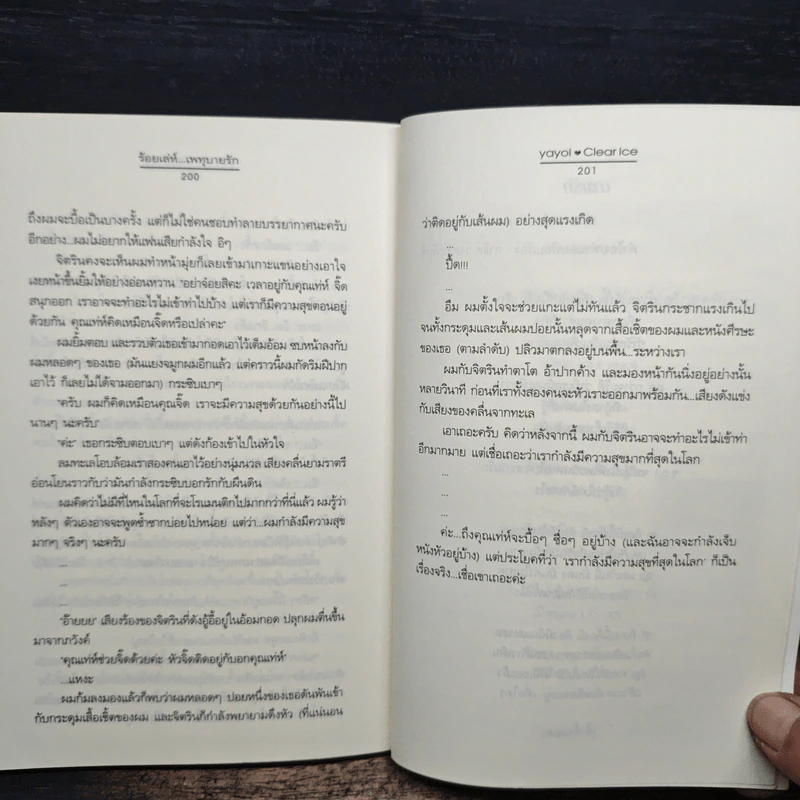 ร้อยเล่ห์...เพทุบายรัก
200
ถึงผมจะบื้อเป็นบางครั้ง แต่ก็ไม่ใช่คนชอบทำลายบรรยากาศนะครับ
อีกอย่าง...ผมไม่อยากให้แฟนเสียกำลังใจ อิๆ
จิตรินคงจะเห็นผมทำหน้ามุ่ยก็เลยเข้ามาเกาะแขนอย่างเอาใจ
เงยหน้าขึ้นยิ้มให้อย่างอ่อนหวาน "อย่าจ๋อยสิคะ เวลาอยู่กับคุณเท่ห์ จี๊ด
สนุกออก เราอาจจะทำอะไรไม่เข้าท่าไปบ้าง แต่เราก็มีความสุขตอนอยู่
ด้วยกัน คุณเท่ห์คิดเหมือนจี๊ดหรือเปล่าคะ"
ผมยิ้มตอบ และรวบตัวเธอเข้ามากอดเอาไว้เต็มอ้อม ซบหน้าลงกับ
ผมหลอดๆ ของเธอ (มันแยงจมูกผมอีกแล้ว แต่คราวนี้ผมกัดริมฝีปาก
เอาไว้ ก็เลยไม่ได้จามออกมา) กระซิบเบาๆ
"ครับ ผมก็คิดเหมือนคุณจี๊ด เราจะมีความสุขด้วยกันอย่างนี้ไป
นานๆ นะครับ"
"ค่ะ" เธอกระซิบตอบเบาๆ แต่ดังก้องเข้าไปในหัวใจ
ลมทะเลโอบล้อมเราสองคนเอาไว้อย่างนุ่มนวล เสียงคลื่นยามราตรี
อ่อนโยนราวกับว่ามันกำลังกระซิบบอกรักกับผืนดิน
ผมคิดว่าไม่มีที่ไหนในโลกที่จะโรแมนติกไปมากกว่าที่นี่แล้ว ผมรู้ว่า
หลังๆ ตัวเองอาจจะพูดซ้ำซากบ่อยไปหน่อย แต่ว่า...ผมกำลังมีความสุข
มากๆ จริงๆ นะครับ
...
...
"อ๊ายยย" เสียงร้องของจิตรินที่ดังอู้อี้อยู่ในอ้อมกอด ปลุกผมตื่นขึ้น
มาจากภวังค์
"คุณเท่ห์ช่วยจี๊ดด้วยค่ะ หัวจี๊ดติดอยู่กับอกคุณเท่ห์"
...แหงะ
ผมก้มลงมองแล้วก็พบว่าผมหลอดๆ ปอยหนึ่งของเธอดันพันเข้า
กับกระดุมเสื้อเชิ้ตของผม และจิตรินก็กำลังพยายามดึงหัว (ที่แน่นอน
yayoi ♥ Clear Ice
201
ว่าติดอยู่กับเส้นผม) อย่างสุดแรงเกิด
...
ปี๊ด!!!
...
อืม ผมตั้งใจจะช่วยแกะแต่ไม่ทันแล้ว จิตรินกระชากแรงเกินไป
จนทั้งกระดุมและเส้นผมปอยนั้นหลุดจากเสื้อเชิ้ตของผมและหนังศีรษะ
ของเธอ (ตามลำดับ) ปลิวมาตกลงอยู่บนพื้น...ระหว่างเรา
ผมกับจิตรินทำตาโต อ้าปากค้าง และมองหน้ากันนิ่งอยู่อย่างนั้น
หลายวินาที ก่อนที่เราทั้งสองคนจะหัวเราะออกมาพร้อมกัน...เสียงดังแข่ง
กับเสียงของคลื่นจากทะเล
เอาเถอะครับ คิดว่าหลังจากนี้ ผมกับจิตรินอาจจะทำอะไรไม่เข้าท่า
อีกมากมาย แต่เชื่อเถอะว่าเรากำลังมีความสุขมากที่สุดในโลก
...
...
...
ค่ะ...ถึงคุณเท่ห์จะบื้อๆ ซื่อๆ อยู่บ้าง (และฉันอาจจะกำลังเจ็บ
หนังหัวอยู่บ้าง) แต่ประโยคที่ว่า 'เรากำลังมีความสุขที่สุดในโลก' ก็เป็น
เรื่องจริง...เชื่อเขาเถอะค่ะ